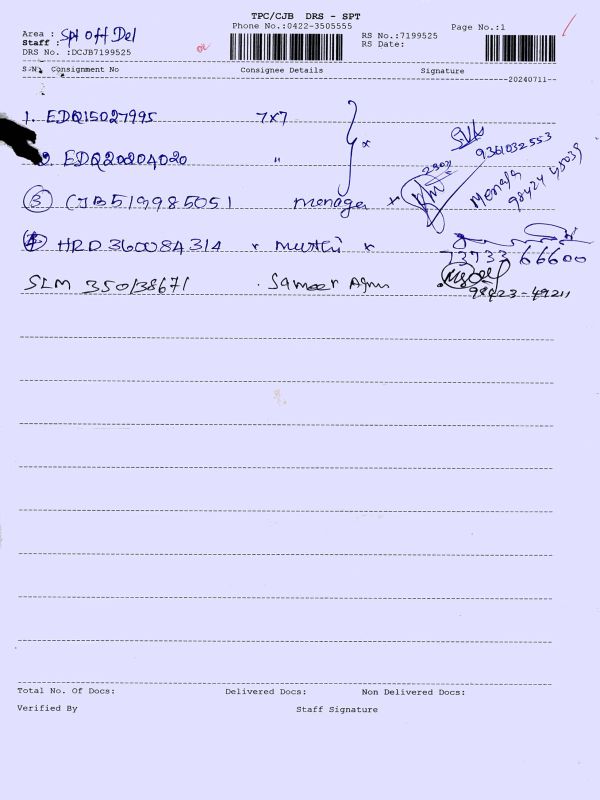 TPC/CJB DRS - SPT
Phone No.:0422-3505555
Page No.:1
Area : Spt off Del
Staff :
RS No.:7199525
DRS No. :DCJB7199525
RS Date:
S.No Consignment No Consignee Details Signature
20240711
1. EDQ15027995 7x7
2. EDQ20204020 "
9361032553
3 CJB519985051 menager x
98424 45039
4 HRD 360084314 x murthi x
73733 66600
SLM 350138671 . Sameer
98423-49211
Total No. Of Docs: Delivered Docs: Non Delivered Docs:
Verified By Staff Signature